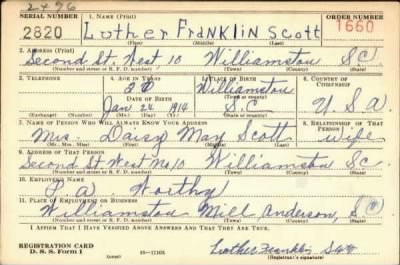 2496
SERIAL NUMBER 1. NAME (Print) ORDER NUMBER
2820 Luther Franklin Scott 1660
(First) (Middle) (Last)
2. ADDRESS (Print)
Second St. West, 10 Williamston S.C.
(Number and street or R. F. D. number) (Town) (County) (State)
3. TELEPHONE 4. AGE IN YEARS 5. PLACE OF BIRTH 6. COUNTRY OF CITIZENSHIP
Williamston
DATE OF BIRTH (Town or county)
Jan 24 1914 S.C U.S.A.
(Exchange) (Number) (Mo.) (Day) (Yr.) (State or country)
7. NAME OF PERSON WHO WILL ALWAYS KNOW YOUR ADDRESS 8. RELATIONSHIP OF THAT PERSON
Mrs. Daisy May Scott wife
(Mr., Mrs., Miss) (First) (Middle) (Last)
9. ADDRESS OF THAT PERSON
Second St West No 10 Williamston SC
(Number and street or R. F. D. number) (Town) (County) (State)
10. EMPLOYER'S NAME
P. A. Worthy
11. PLACE OF EMPLOYMENT OR BUSINESS
Williamston Mill Anderson, S C
(Number and street or R. F. D. number) (Town) (County) (State)
I AFFIRM THAT I HAVE VERIFIED ABOVE ANSWERS AND THAT THEY ARE TRUE.
REGISTRATION CARD
D. S. S. Form 1 (over) Luther Franklin Scott
(Registrant's signature)